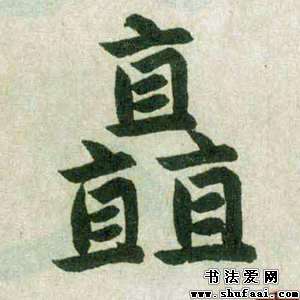 矗
书法爱网
www.shufaai.com